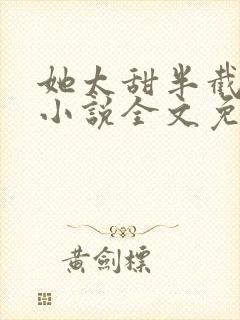 她太甜半截
小說全文免
黄劍標